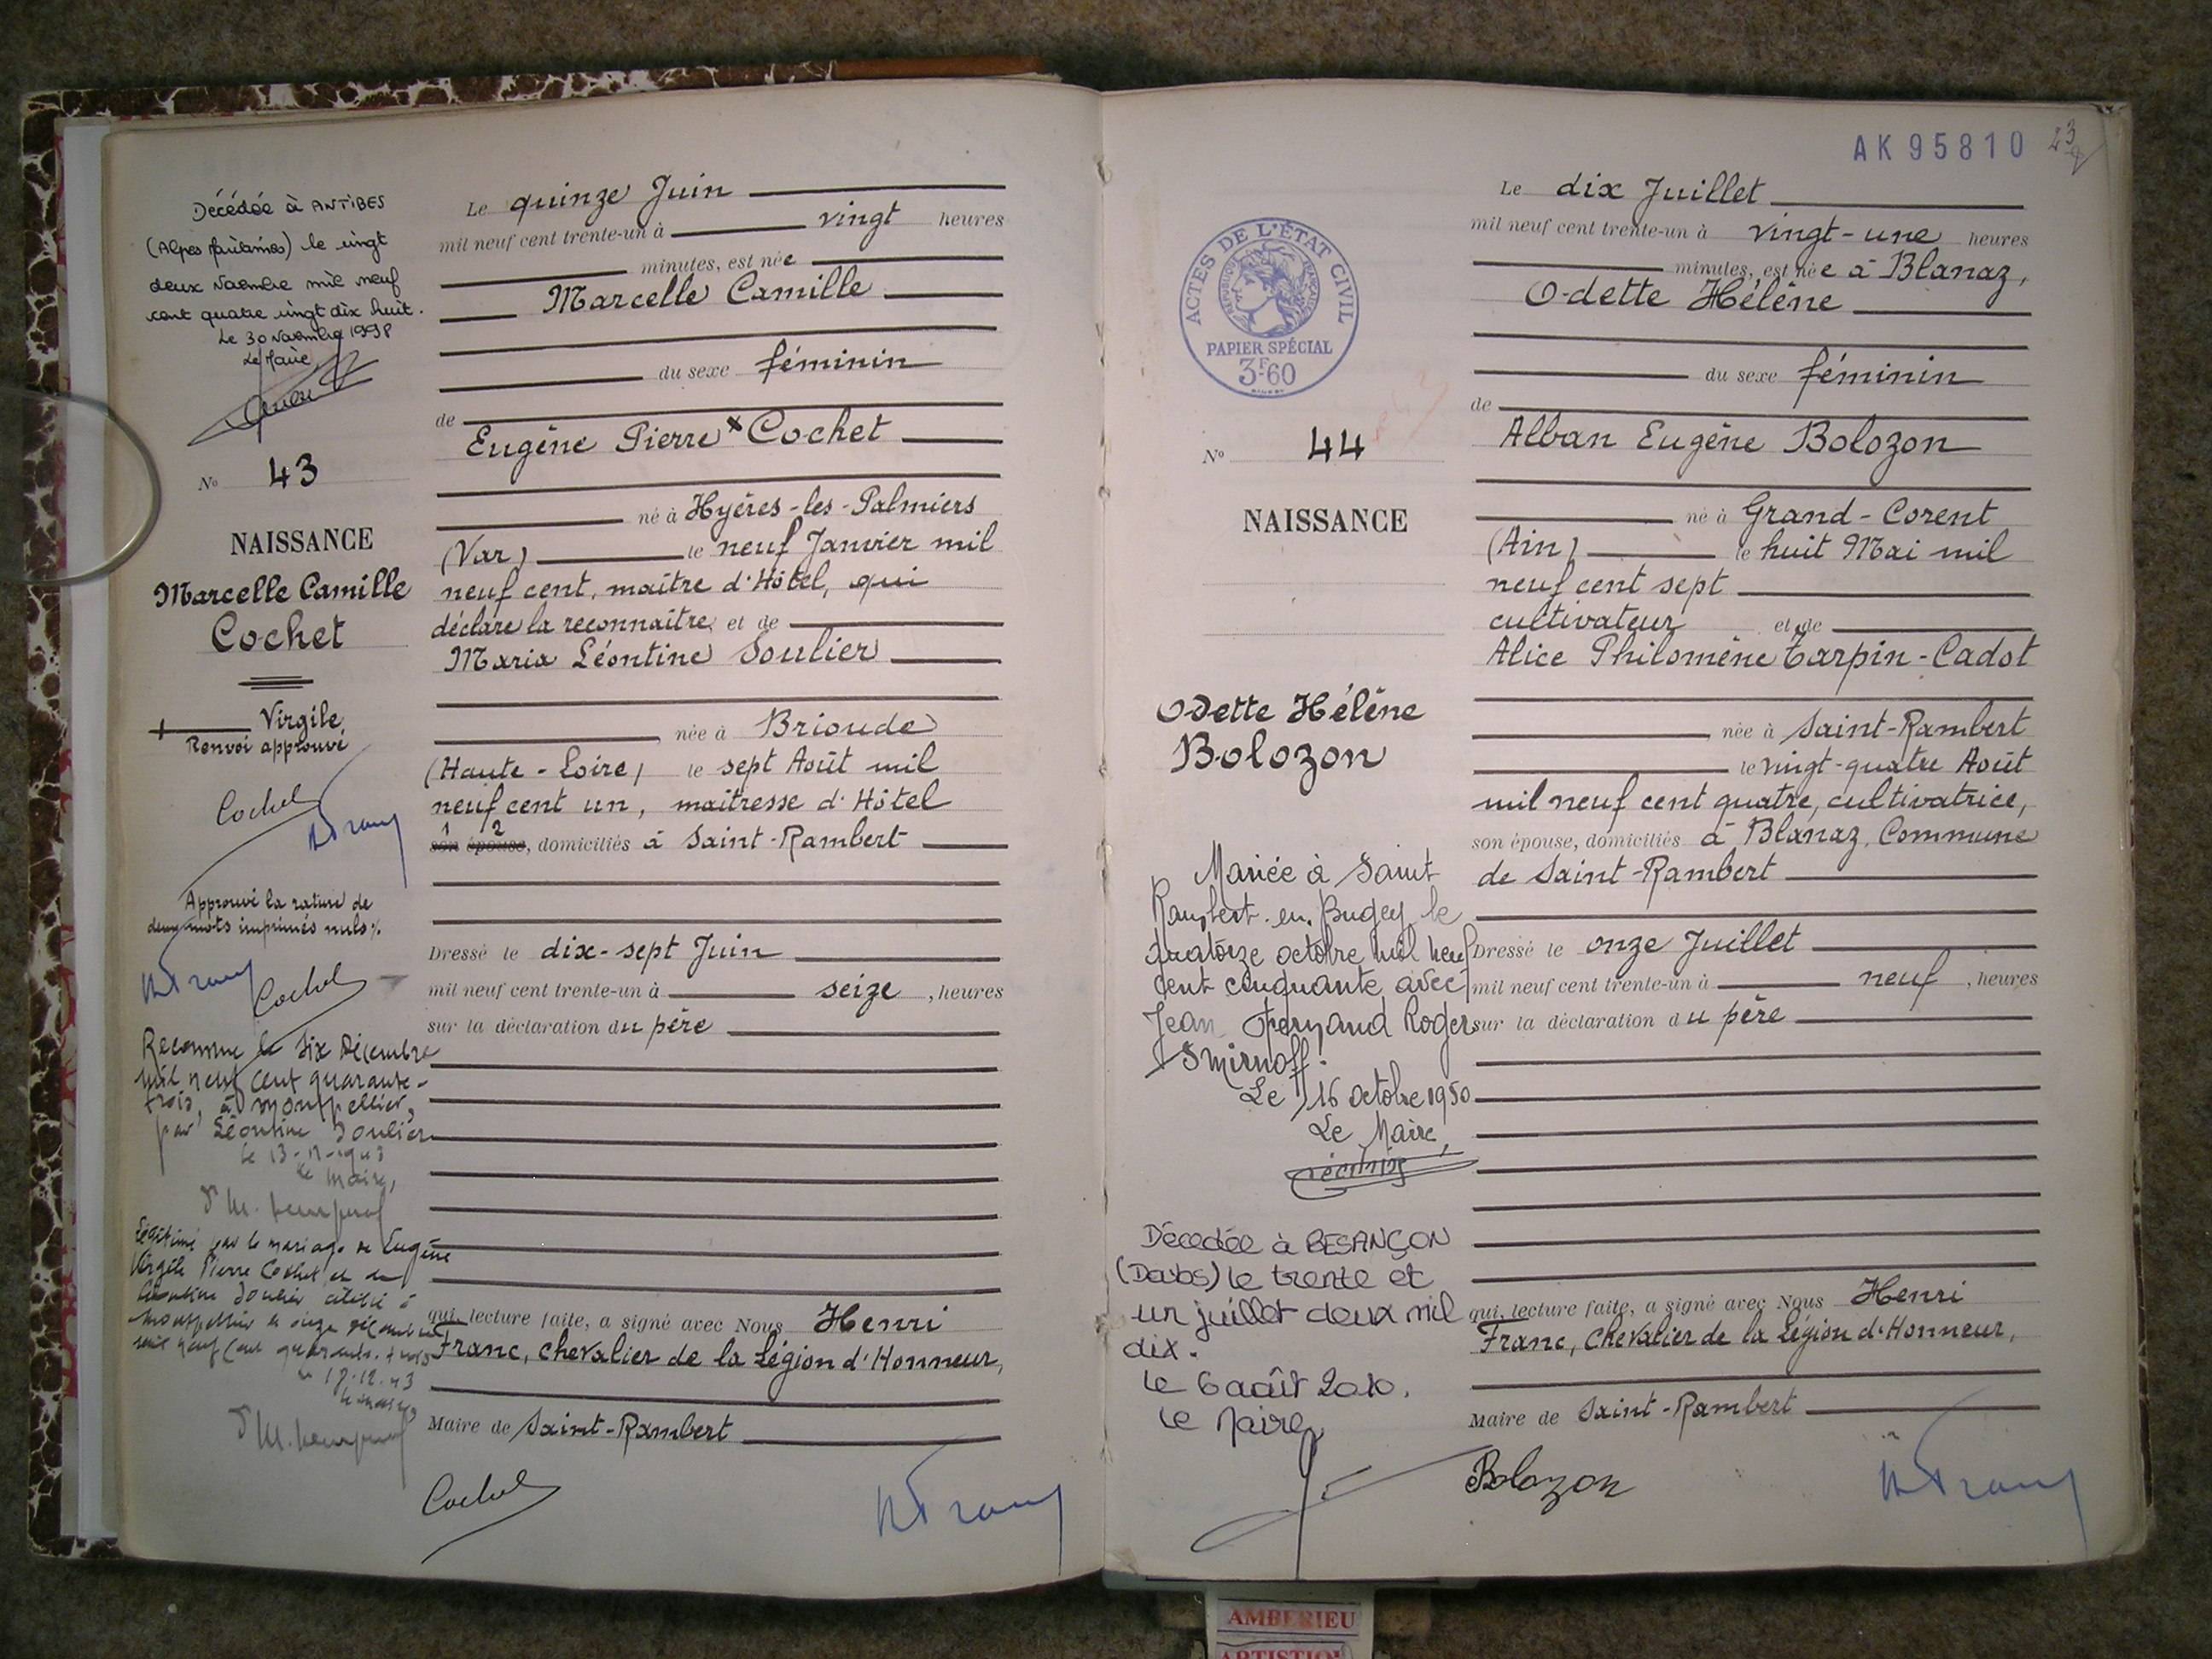 Décédée à ANTIBES
(Alpes Maritimes) le vingt
deux Novembre mil neuf
cent quatre vingt dix huit.
Le 30 Novembre 1998
Le Maire
N° 43
NAISSANCE
Marcelle Camille
Cochet
Virgile
Renvoi approuvé
Cochet
H Franc
Approuvé la rature de
deux mots imprimés nuls
H Franc
Cochet
Reconnue le six Décembre
mil neuf cent quarante-
trois, à Montpellier,
par Léontine Soulier
le Maire,
Légitimé par le mariage de Eugène
Virgile Pierre Cochet et de
Léontine Soulier célébré à
Montpellier le onze décembre
mil neuf cent quarante-trois
le 17.12.43
le Maire,
Le quinze Juin
mil neuf cent trente-un à vingt heures
minutes, est née
Marcelle Camille
du sexe féminin
de
Eugène Pierre x Cochet
né à Hyères-les-Palmiers
(Var) le neuf Janvier mil
neuf cent, maître d'Hôtel, qui
déclare la reconnaître, et de
Maria Léontine Soulier
née à Brioude
(Haute-Loire) le sept Août mil
neuf cent un, maîtresse d'Hôtel
1 2
son épouse, domiciliés à Saint-Rambert
Dressé le dix-sept Juin
mil neuf cent trente-un à seize, heures
sur la déclaration du père
qui, lecture faite, a signé avec Nous Henri
Franc, Chevalier de la Légion d'Honneur,
Maire de Saint-Rambert
Cochet
H Franc
AK 95810
23
ACTES DE L'ÉTAT CIVIL
RÉPUBLIQUE FRANÇAISE
PAPIER SPÉCIAL
3F60
N° 44
NAISSANCE
Odette Hélène
Bolozon
Mariée à Saint
Rambert-en-Bugey le
quatorze octobre mil neuf
cent cinquante avec
Jean Fernand Roger
Smirnoff.
Le 16 octobre 1950
Le Maire,
Décédée à BESANÇON
(Doubs) le trente et
un juillet deux mil
dix.
Le 6 août 2010.
Le Maire
Le dix Juillet
mil neuf cent trente-un à vingt-une heures
minutes, est née à Blanaz,
Odette Hélène
du sexe féminin
de
Alban Eugène Bolozon
né à Grand-Corent
(Ain) le huit Mai mil
neuf cent sept
cultivateur et de
Alice Philomène Tarpin-Cadot
née à Saint-Rambert
le vingt-quatre Août
mil neuf cent quatre, cultivatrice,
son épouse, domiciliés à Blanaz, Commune
de Saint-Rambert
Dressé le onze Juillet
mil neuf cent trente-un à neuf, heures
sur la déclaration du père
qui, lecture faite, a signé avec Nous Henri
Franc, Chevalier de la Légion d'Honneur,
Maire de Saint-Rambert
Bolozon
H Franc
AMBERIEU